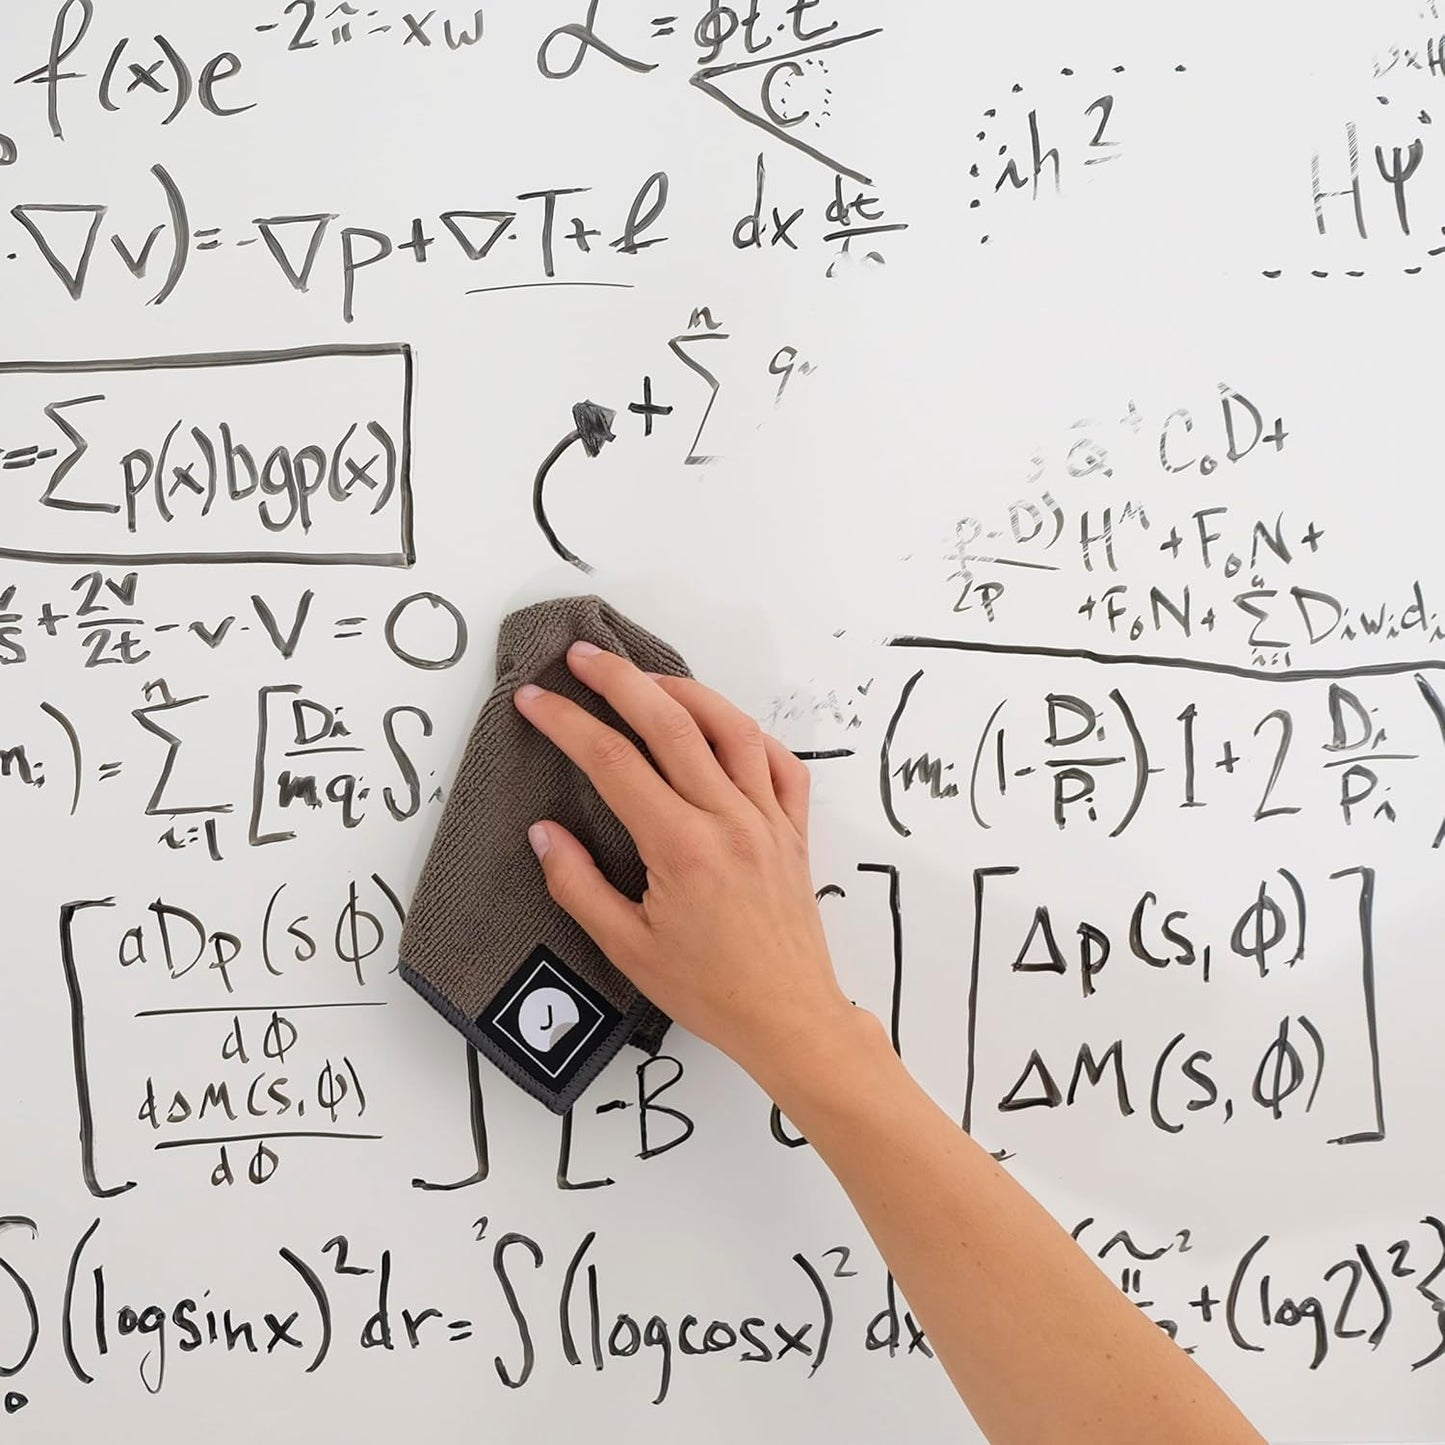 f(x)e^-2πi-xw
L = ϕt.t / C
iħ²
HΨ
·∇v)=-∇p+∇·T+f
dx dt
+ Σ^n
=-Σp(x)bgp(x)
C₀D+
P-D) / 2P H^M+F₀N+
+F₀N+ Σ^n_i=1 D_i w_i d_i
+ 2v/2t - v·V = O
m_i) = Σ^n_i=1 [D_i/mq_i ∫
(m_i(1-D_i/P_i)-1+2 D_i/P_i)
[aDp(sϕ) / dϕ
dΔM(s,ϕ) / dϕ]
J
[-B
[Δp(s,ϕ)
ΔM(s,ϕ)]
∫₀(logsinx)²dr= ²∫(logcosx)² dx
+(log2)²}